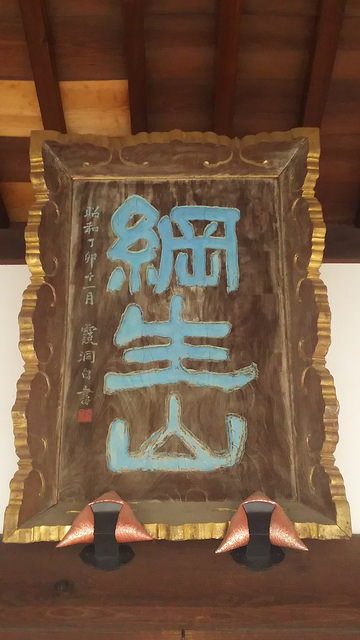 綱生山
昭和丁卯十一月 霞洞書